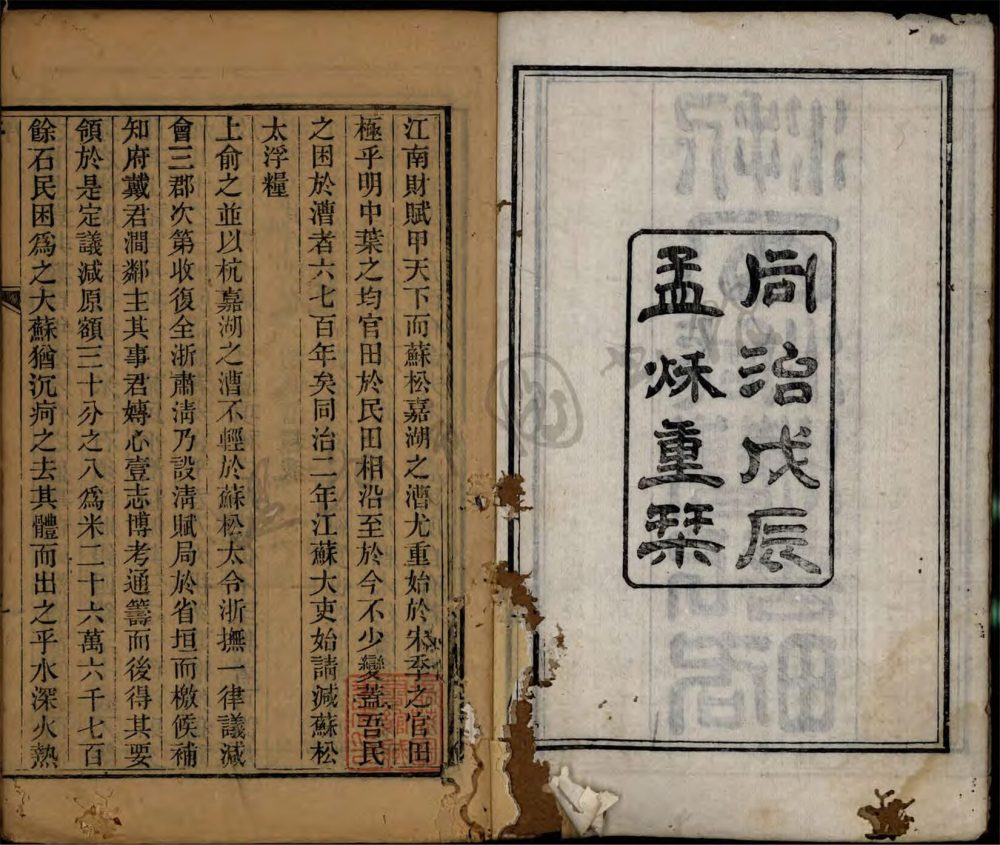 同治戊辰
孟秌重栞
江南財賦甲天下而蘇松嘉湖之漕尤重始於宋季之官田
極乎明中葉之均官田於民田相沿至於今不少變蓋吾民
之困於漕者六七百年矣同治二年江蘇大吏始請減蘇松
太浮糧
上俞之並以杭嘉湖之漕不輕於蘇松太令浙撫一律議減
會三郡次第收復全浙肅淸乃設淸賦局於省垣而檄候補
知府戴君澗鄰主其事君嫥心壹志博考通籌而後得其要
領於是定議減原額三十分之八爲米二十六萬六千七百
餘石民困爲之大蘇猶沉疴之去其體而出之乎水深火熱